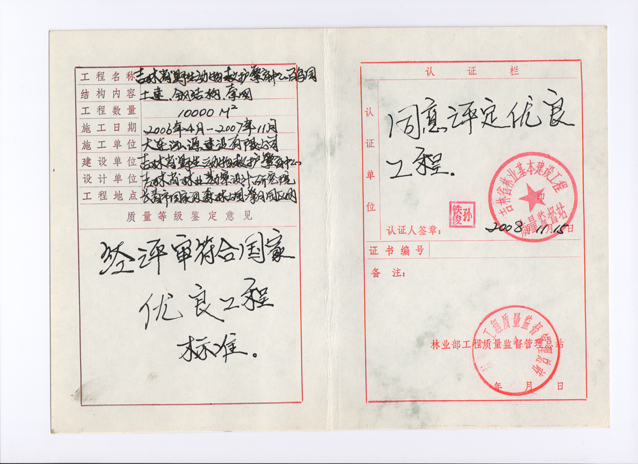 工程名称 吉林省野生动物救护繁育中心百鸟园
结构内容 土建、钢结构、幕网
工程数量 10000 M²
施工日期 2006年4月-2007年11月
施工单位
建设单位 吉林省野生动物救护繁育中心
设计单位 吉林省林业勘察设计研究院
工程地点
质量等级鉴定意见
经评审符合国家
优良工程
标准。
认证栏
认证单位
同意评定优良
工程.
吉林省林业基本建设工程
质量监督站
认证人签章:
2008 11月15日
证书编号
备注:
林业部工程质量监督管理总站
年 月 日